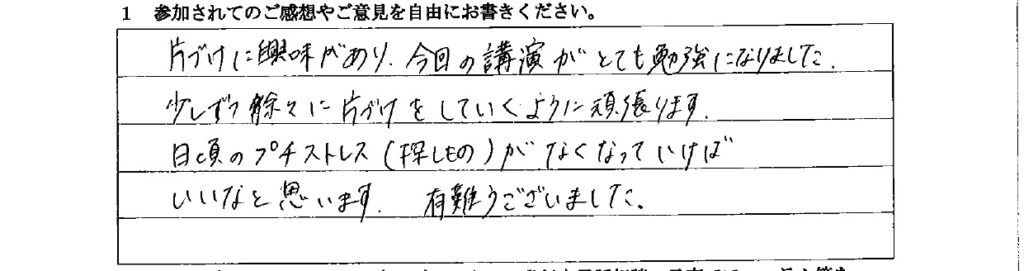 1 参加されてのご感想やご意見を自由にお書きください。
片づけに興味があり、今回の講演がとても勉強になりました。
少しずつ徐々に片づけをしていくように頑張ります。
日頃のプチストレス（探しもの）がなくなっていけば
いいなと思います。 有難うございました。